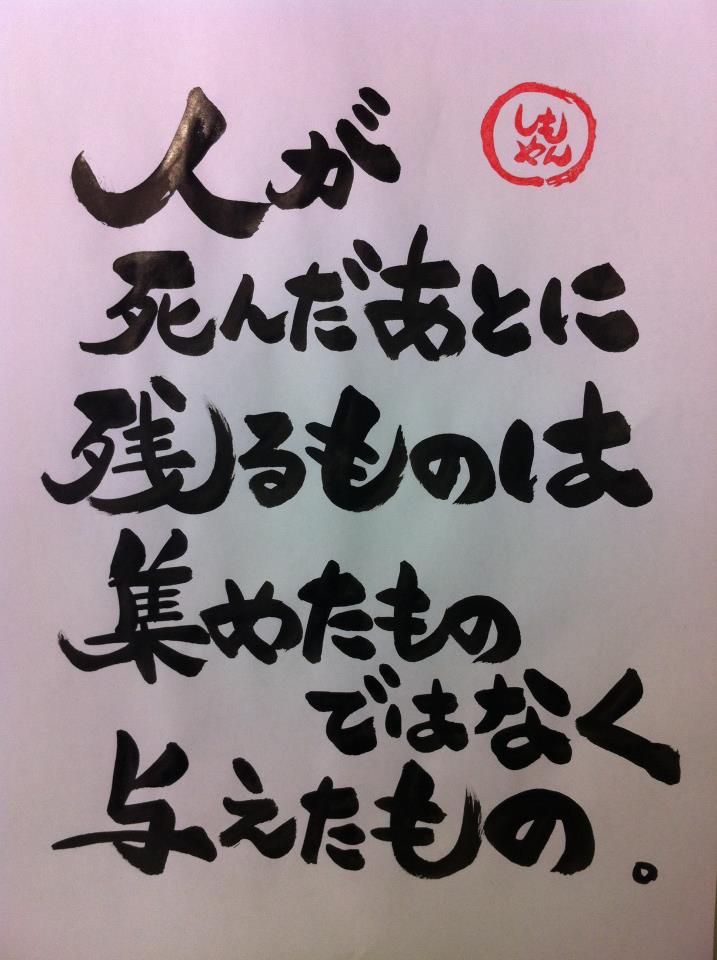 人が
しも
やん
死んだあとに
残るものは
集めたもの
ではなく
与えたもの。